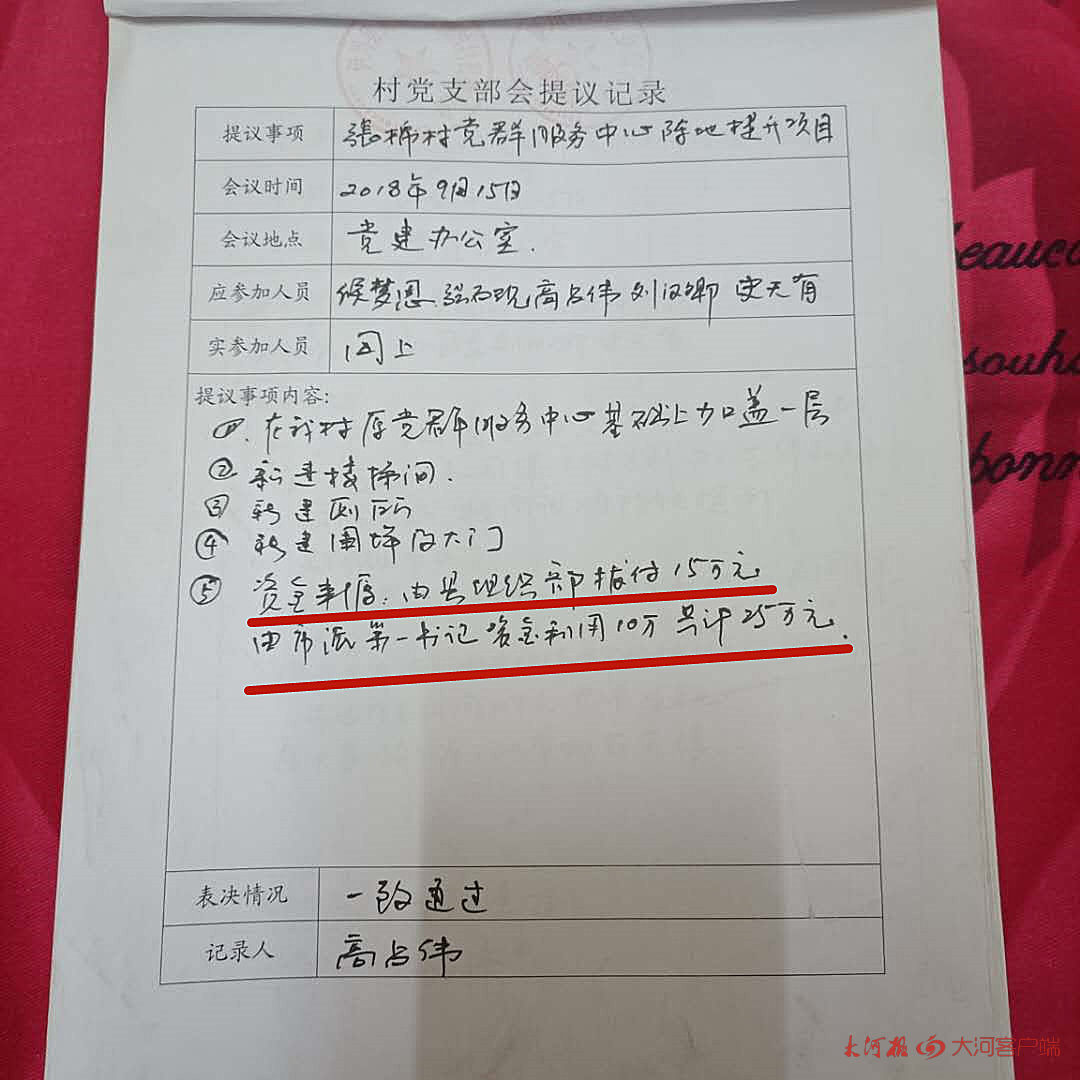 村党支部会提议记录
提议事项 张柿村党群服务中心阵地提升项目
会议时间 2018年9月15日
会议地点 党建办公室.
应参加人员 侯梦恩 高占伟 刘汉卿 史天有
实参加人员 同上
提议事项内容:
①.在我村原党群服务中心基础上加盖一层
② 新建楼梯间.
③ 新建厕所
④ 新建围墙及大门
⑤ 资金来源:由县组织部拨付15万元
由市派第一书记资金利用10万 共计25万元.
表决情况 一致通过
记录人 高占伟
beauco
souha
bonn
大河报 大河客户端